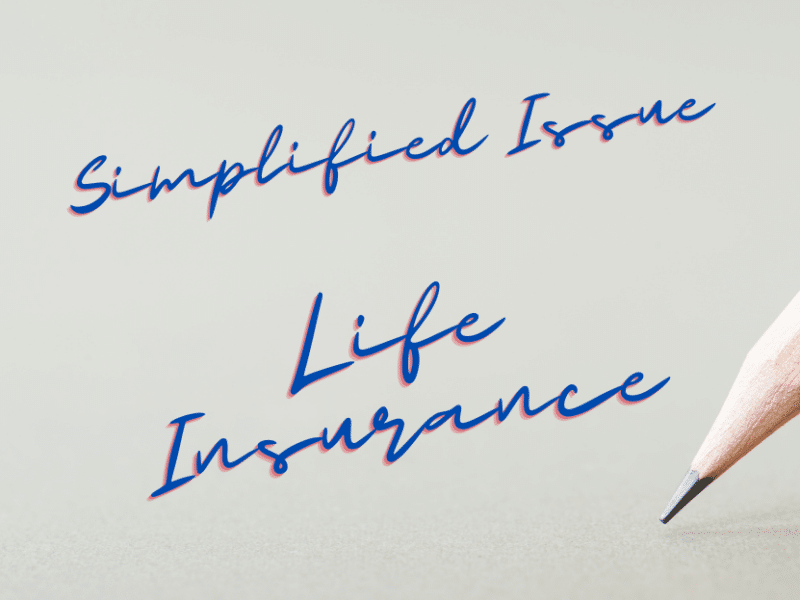 Simplified Issue
Life
Insurance